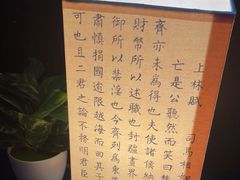 上林賦
司馬相如
亡是公听然而笑曰
齊亦未為得也夫使諸侯納
財幣所以述職也封疆畫界
御所以禁淫也今齊列為東
肅慎捐國逾限越海而田其
可也且二君之論不務明君臣